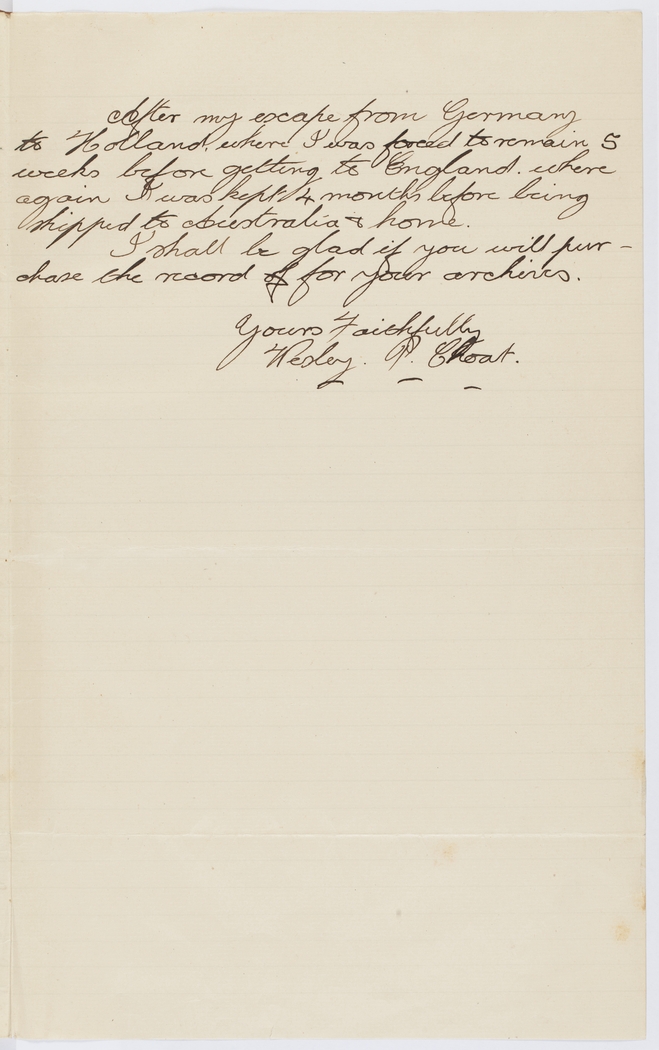 After my escape from Germany
to Holland, where I was forced to remain 5
weeks before getting to England. where
again I was kept 4 months before being
shipped to Australia & home.
I shall be glad if you will pur-
chase the record of for your archives.
Yours Faithfully
Wesley. P. Choat.